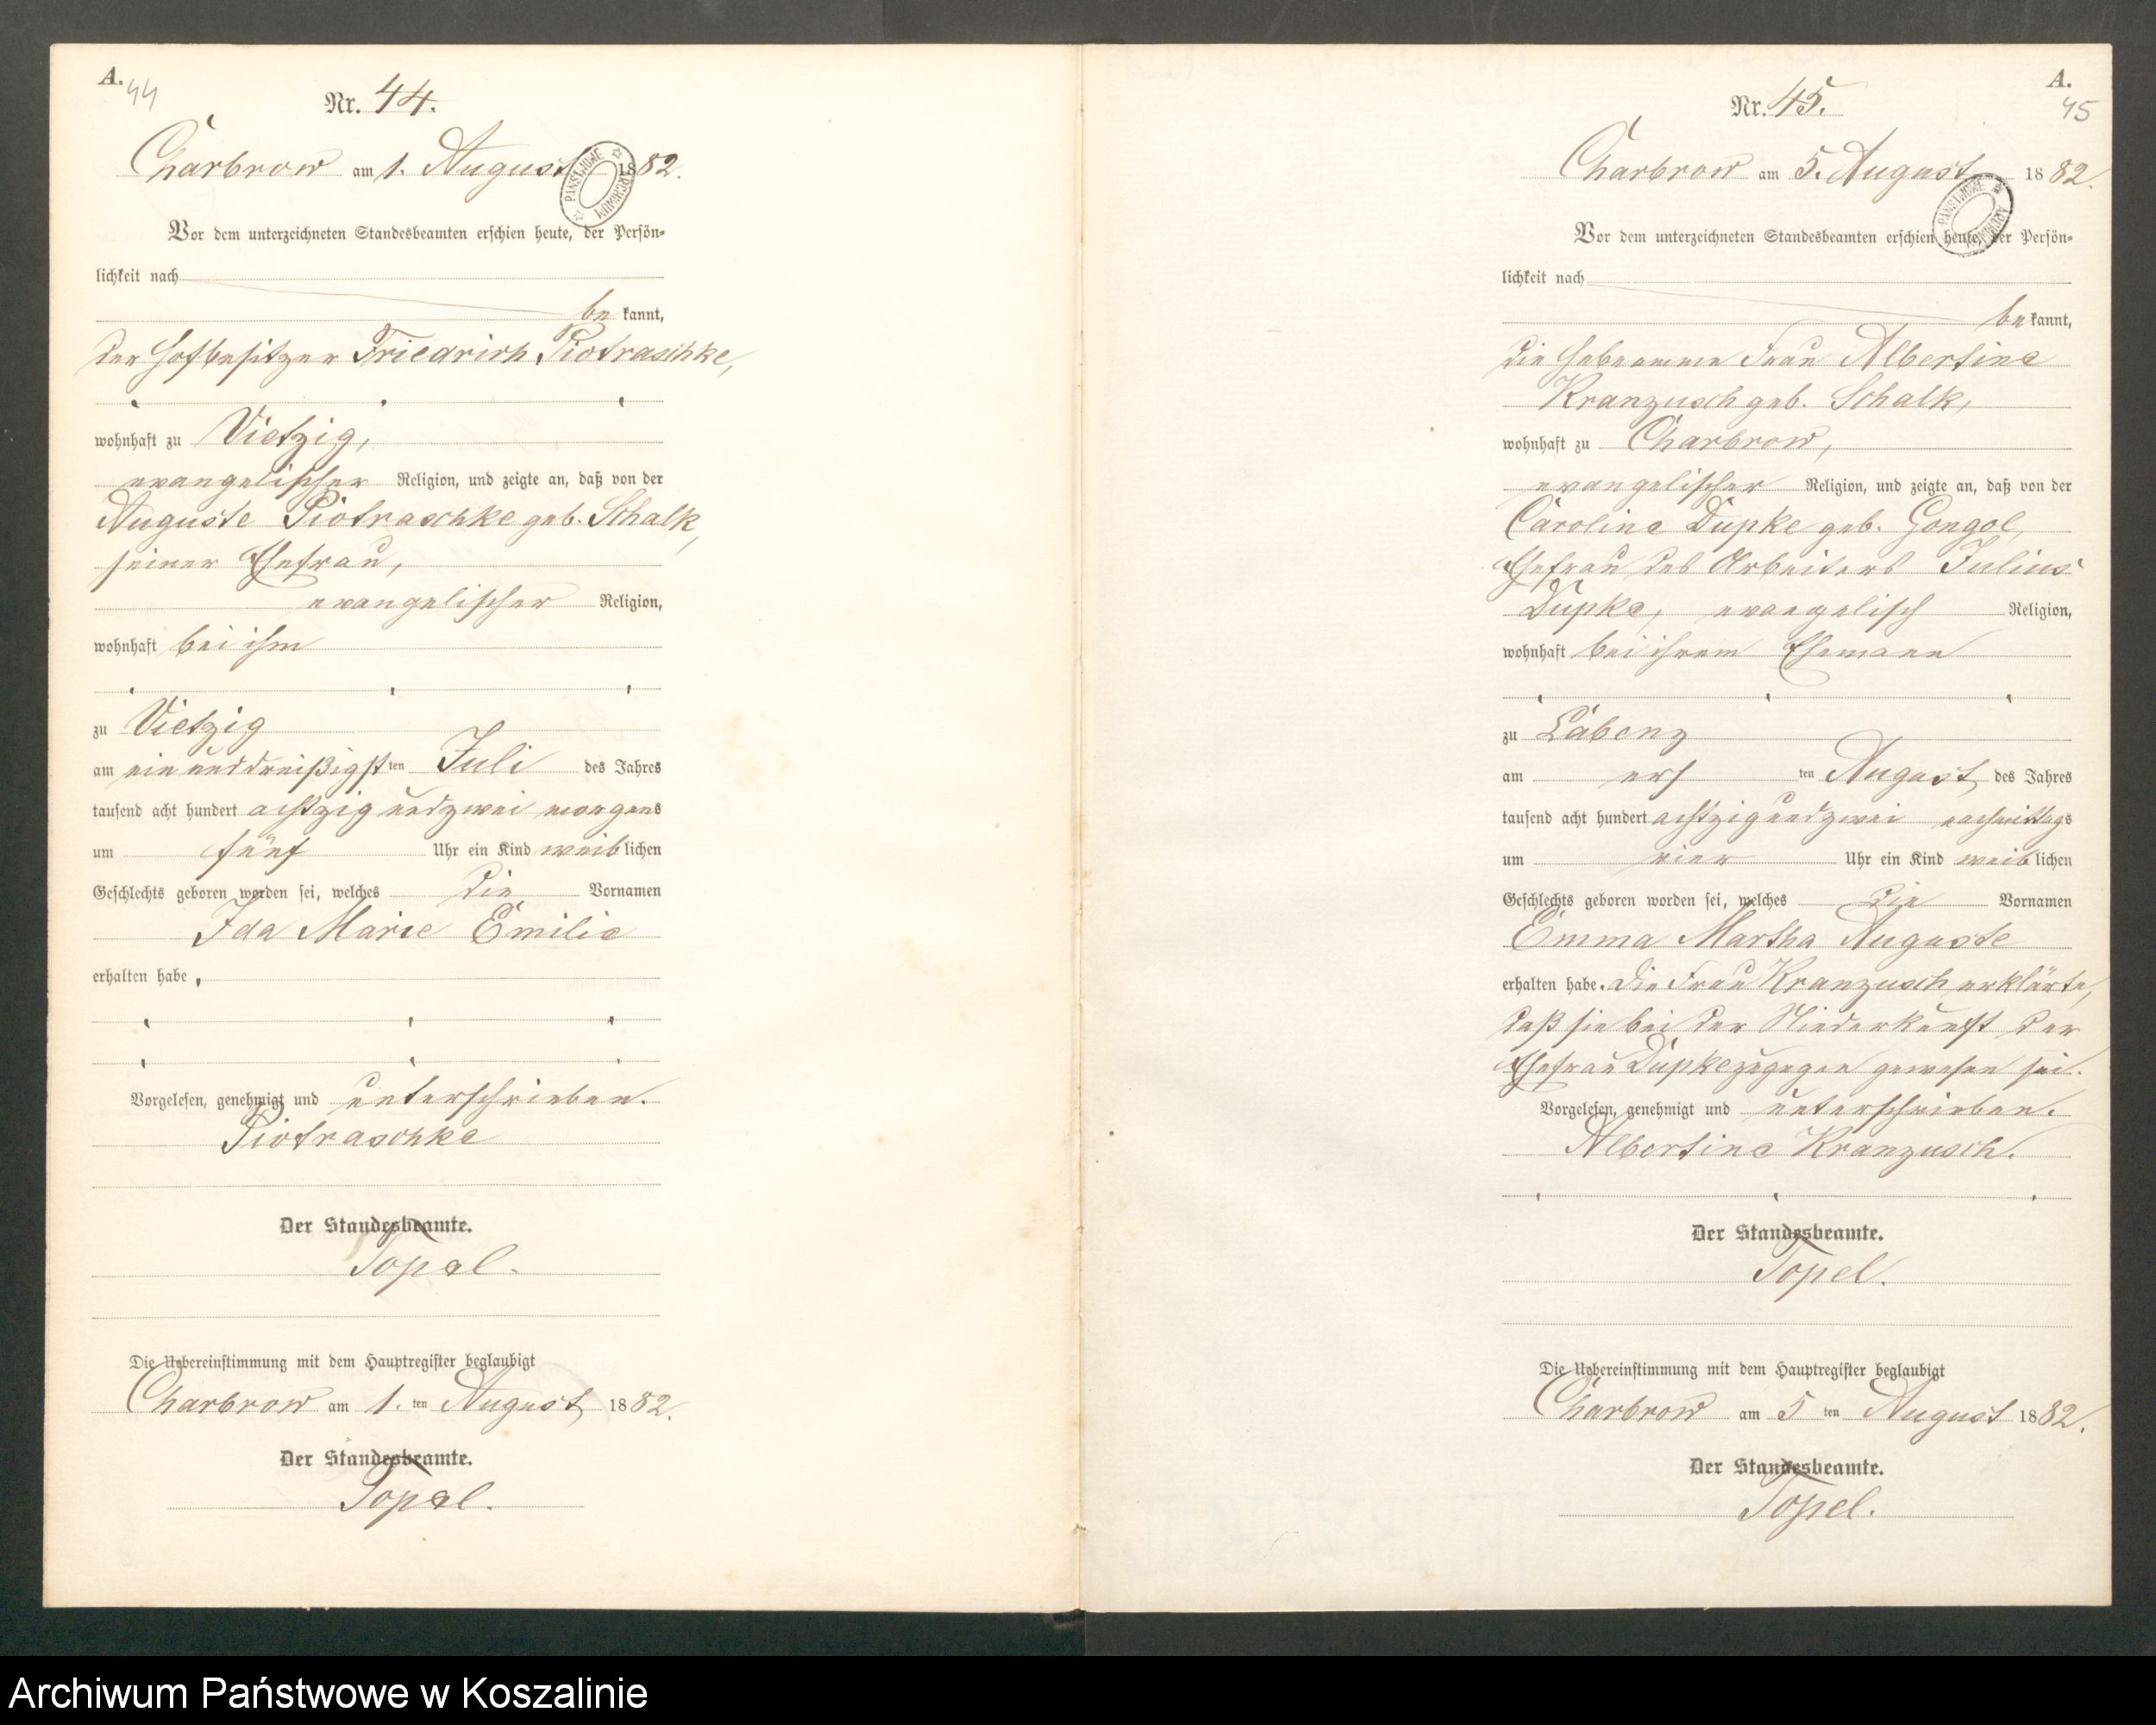 A.
44
Nr. 44.
Charbrow am 1. August 1882.
PAŃSTWOWE ARCHIWUM
Vor dem unterzeichneten Standesbeamten erschien heute, der Persön-
lichkeit nach
be kannt,
der Hofbesitzer Friedrich Piotraschke,
wohnhaft zu Vietzig,
evangelischer Religion, und zeigte an, daß von der
Auguste Piotraschke geb. Schalk,
seiner Ehefrau,
evangelischer Religion,
wohnhaft bei ihm
zu Vietzig
am ein und dreißigsten Juli des Jahres
tausend acht hundert achtzig und zwei morgens
um fünf Uhr ein Kind weiblichen
Geschlechts geboren worden sei, welches die Vornamen
Ida Marie Emilie
erhalten habe.
Vorgelesen, genehmigt und unterschrieben.
Piotraschke
Der Standesbeamte.
Topel.
Die Uebereinstimmung mit dem Hauptregister beglaubigt
Charbrow am 1. ten August 1882.
Der Standesbeamte.
Topel.
A.
45
Nr. 45.
Charbrow am 5. August 1882.
PAŃSTWOWE ARCHIWUM
Vor dem unterzeichneten Standesbeamten erschien heute, der Persön-
lichkeit nach
be kannt,
die Hebeamme Frau Albertine
Kranzusch geb. Schalk,
wohnhaft zu Charbrow,
evangelischer Religion, und zeigte an, daß von der
Caroline Dupke geb. Gongol,
Ehefrau des Arbeiters Julius
Dupke, evangelisch Religion,
wohnhaft bei ihrem Ehemann
zu Labenz
am ersten August des Jahres
tausend acht hundert achtzig und zwei nachmittags
um vier Uhr ein Kind weiblichen
Geschlechts geboren worden sei, welches die Vornamen
Emma Martha Auguste
erhalten habe. Die Frau Kranzusch erklärte,
daß sie bei der Niederkunft der
Ehefrau Dupke zugegen gewesen sei.
Vorgelesen, genehmigt und unterschrieben.
Albertine Kranzusch.
Der Standesbeamte.
Topel.
Die Uebereinstimmung mit dem Hauptregister beglaubigt
Charbrow am 5 ten August 1882.
Der Standesbeamte.
Topel.
Archiwum Państwowe w Koszalinie